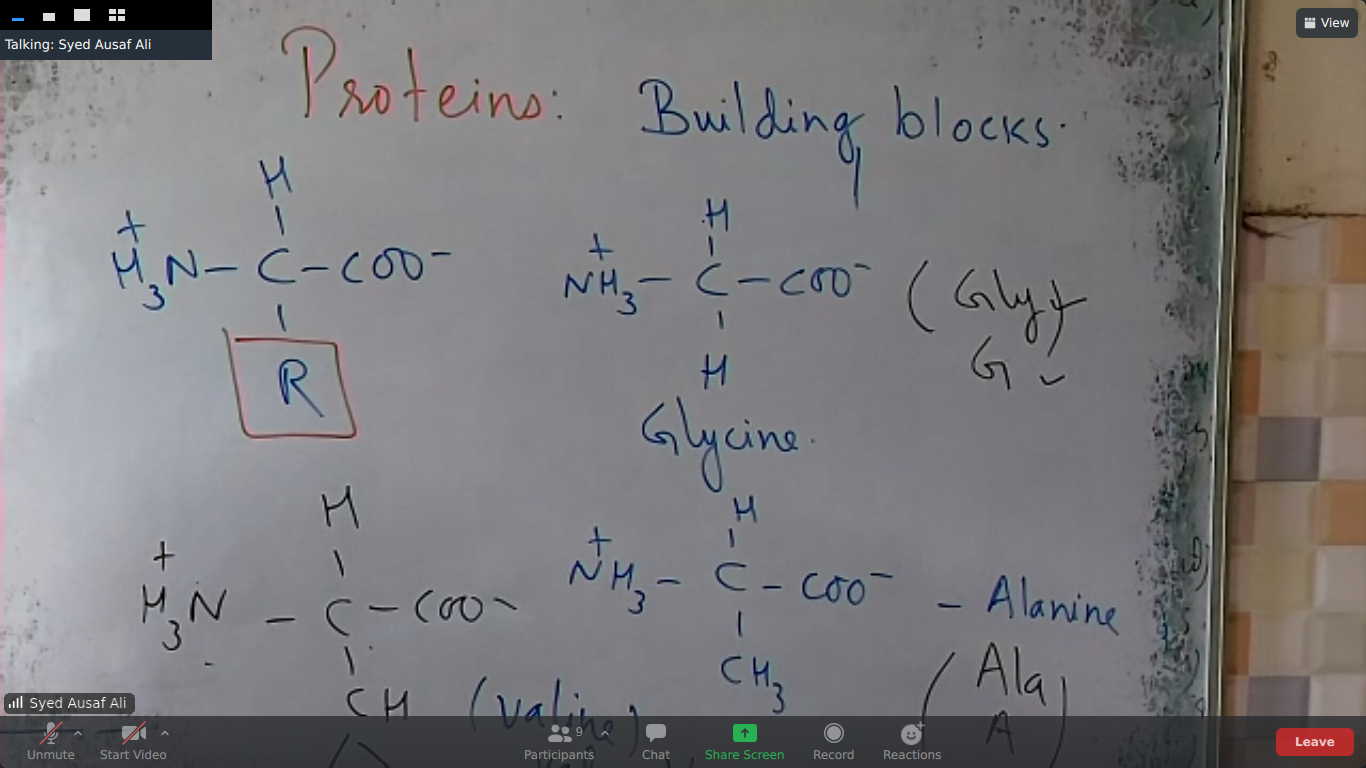 Talking: Syed Ausaf Ali
View
Proteins: Building blocks.
H
+
H3N – C – COO–
R
H
+
NH3 – C – COO– (Gly)
H G
Glycine.
H
+
NH3 – C – COO– – Alanine
CH3 (Ala
A)
H
+
H3N – C – COO–
CH (Valine)
Syed Ausaf Ali
Unmute
Start Video
Participants 9
Chat
Share Screen
Record
Reactions
Leave